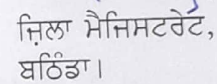 ਜ਼ਿਲਾ ਮੈਜਿਸਟਰੇਟ,
ਬਠਿੰਡਾ।